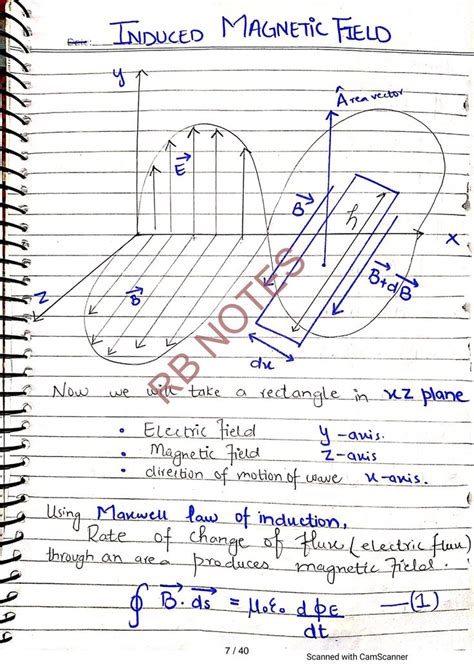 Date:
INDUCED MAGNETIC FIELD
y
Âreavector
E
B
h
x
z
B
B+dB
dx
RB NOTES
Now we will take a rectangle in xz plane
• Electric Field y-axis.
• Magnetic Field z-axis
• direction of motion of wave x-axis.
Using Maxwell law of induction,
Rate of change of flux (electric flux)
through an area produces magnetic field.
∮ B⃗·ds⃗ = μ₀ε₀ dϕE/dt —(1)
7 / 40
Scanned with CamScanner